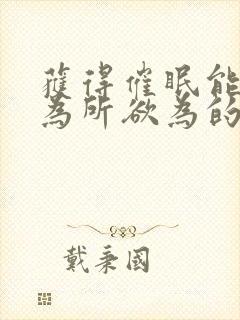 獲得催眠能
為所欲為的
戴秉國